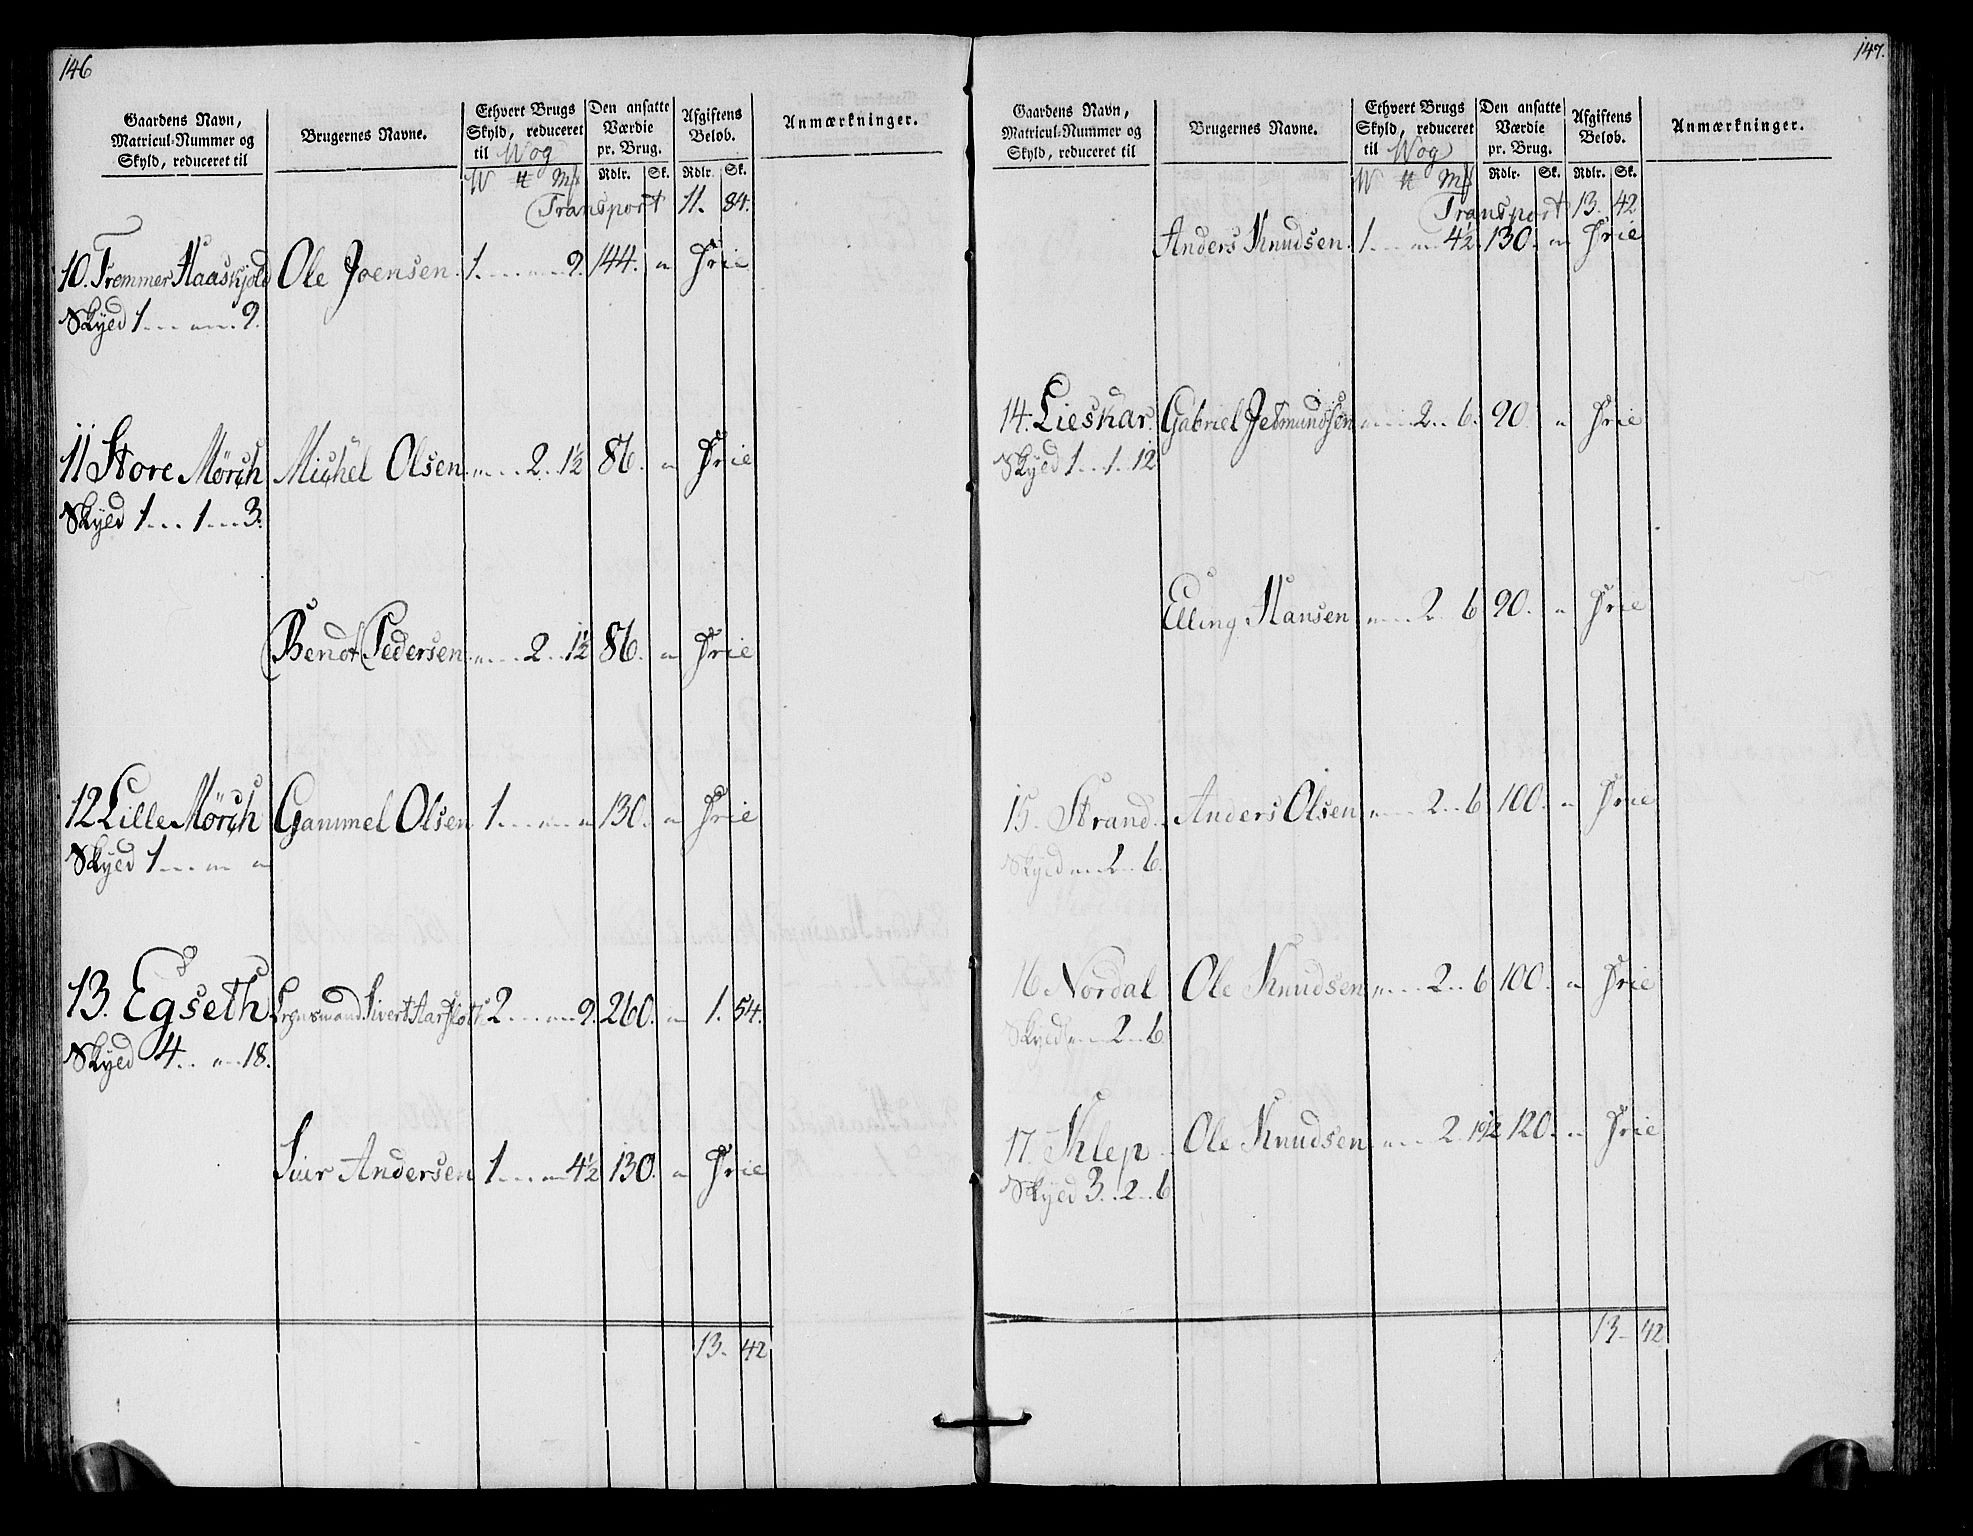 146
Gaardens Navn, Matricul-Nummer og Skyld, reduceret til
Brugernes Navne.
Ethvert Brugs Skyld, reduceret til Wog
Den ansatte Værdie pr. Brug.
Afgiftens Beløb.
Anmærkninger.
W ℔ Mk Rdlr. Sk. Rdlr. Sk.
Transport 11. 84.
10. Tremmer Haaskjold Ole Joensen. 1. . . . „ . . 9. 144. „ Frie
Skyld 1 . . . „ . . . 9.
11 Store Mørch Michel Olsen „ . . . 2 . . 1½ 86. „ Frie
Skyld 1 . . . 1 . . . 3.
Bendt Pedersen „ . . . 2 . . 1½ 86. „ Frie
12 Lille Mørch Gammel Olsen 1 . . . „ . . „ 130. „ Frie
Skyld 1 . . . „ „
13. Egseth Lensmand Sivert Harfloth 2 . . . „ . . 9. 260. „ 1. 54.
Skyld 4 . . „ . . 18.
Siver Andersen 1 . . . „ 4½ 130. „ Frie
13. 42
147.
Gaardens Navn, Matricul-Nummer og Skyld, reduceret til
Brugernes Navne.
Ethvert Brugs Skyld, reduceret til Wog
Den ansatte Værdie pr. Brug.
Afgiftens Beløb.
Anmærkninger.
W ℔ Mk Rdlr. Sk. Rdlr. Sk.
Transport 13. 42
Anders Knudsen. 1 . . . „ . . 4½ 130. „ Frie
14. Lieskar Gabriel Jetmundsen „ . . . 2 . . 6. 90. „ Frie
Skyld 1 . . 1 . . 12
Elling Hansen „ . . . 2 6 90. „ Frie
15. Strand. Anders Olsen „ . . . 2 . . 6 100. „ Frie
Skyld „ . . 2 . . 6.
16 Nordal Ole Knudsen „ . . . 2 . . 6 100. „ Frie
Skyld „ . . 2 . . 6
17. Klep Ole Knudsen „ . . . 2. 10½ 120. „ Frie
Skyld 3 . . 2 . . 6
13 42